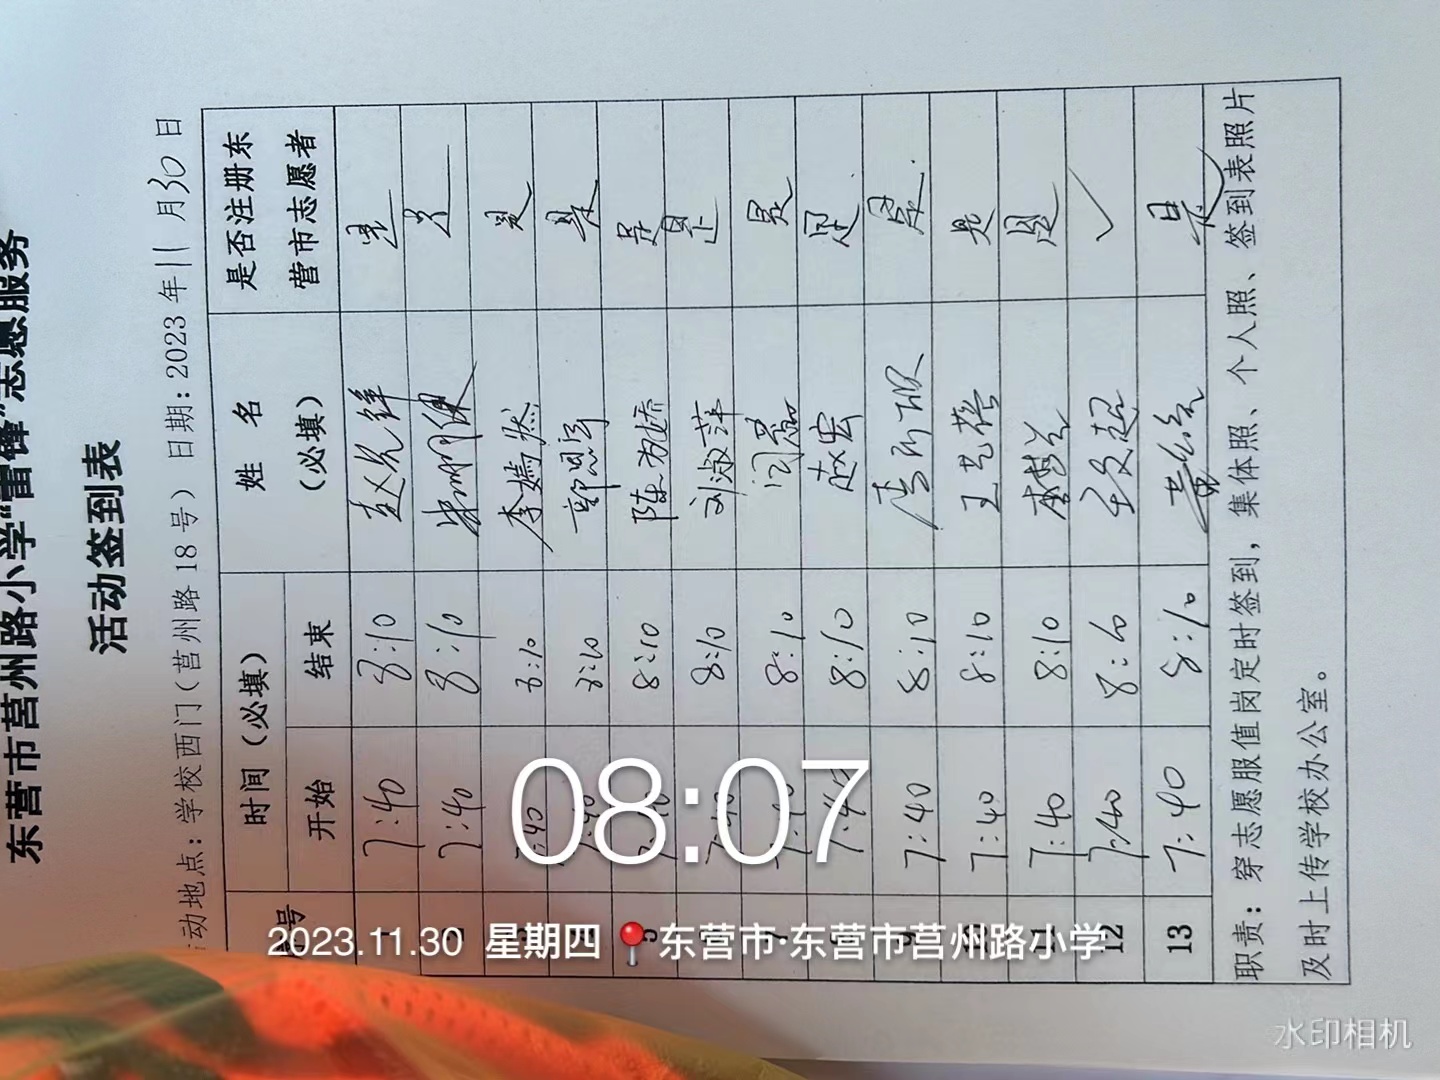 东营市莒州路小学"雷锋"志愿服务
活动签到表
动地点：学校西门（莒州路 18 号） 日期：2023 年 11 月 30 日
号 时间（必填） 姓 名 （必填） 是否注册东营市志愿者
开始 结束
7:40 8:10 是
7:40 8:10
7:40 8:10 李嫣然 是
8:10 是
8:10 是
8:10 刘淑萍 是
8:10 是
7:40 8:10 赵宏 是
7:40 8:10 是
7:40 8:10 王艺蓓 是
7:40 8:10 是
12 7:40 8:10 ✓
13 7:40 8:10 是
职责：穿志愿服值岗定时签到，集体照、个人照、签到表照片
及时上传学校办公室。
08:07
2023.11.30 星期四 东营市·东营市莒州路小学
水印相机